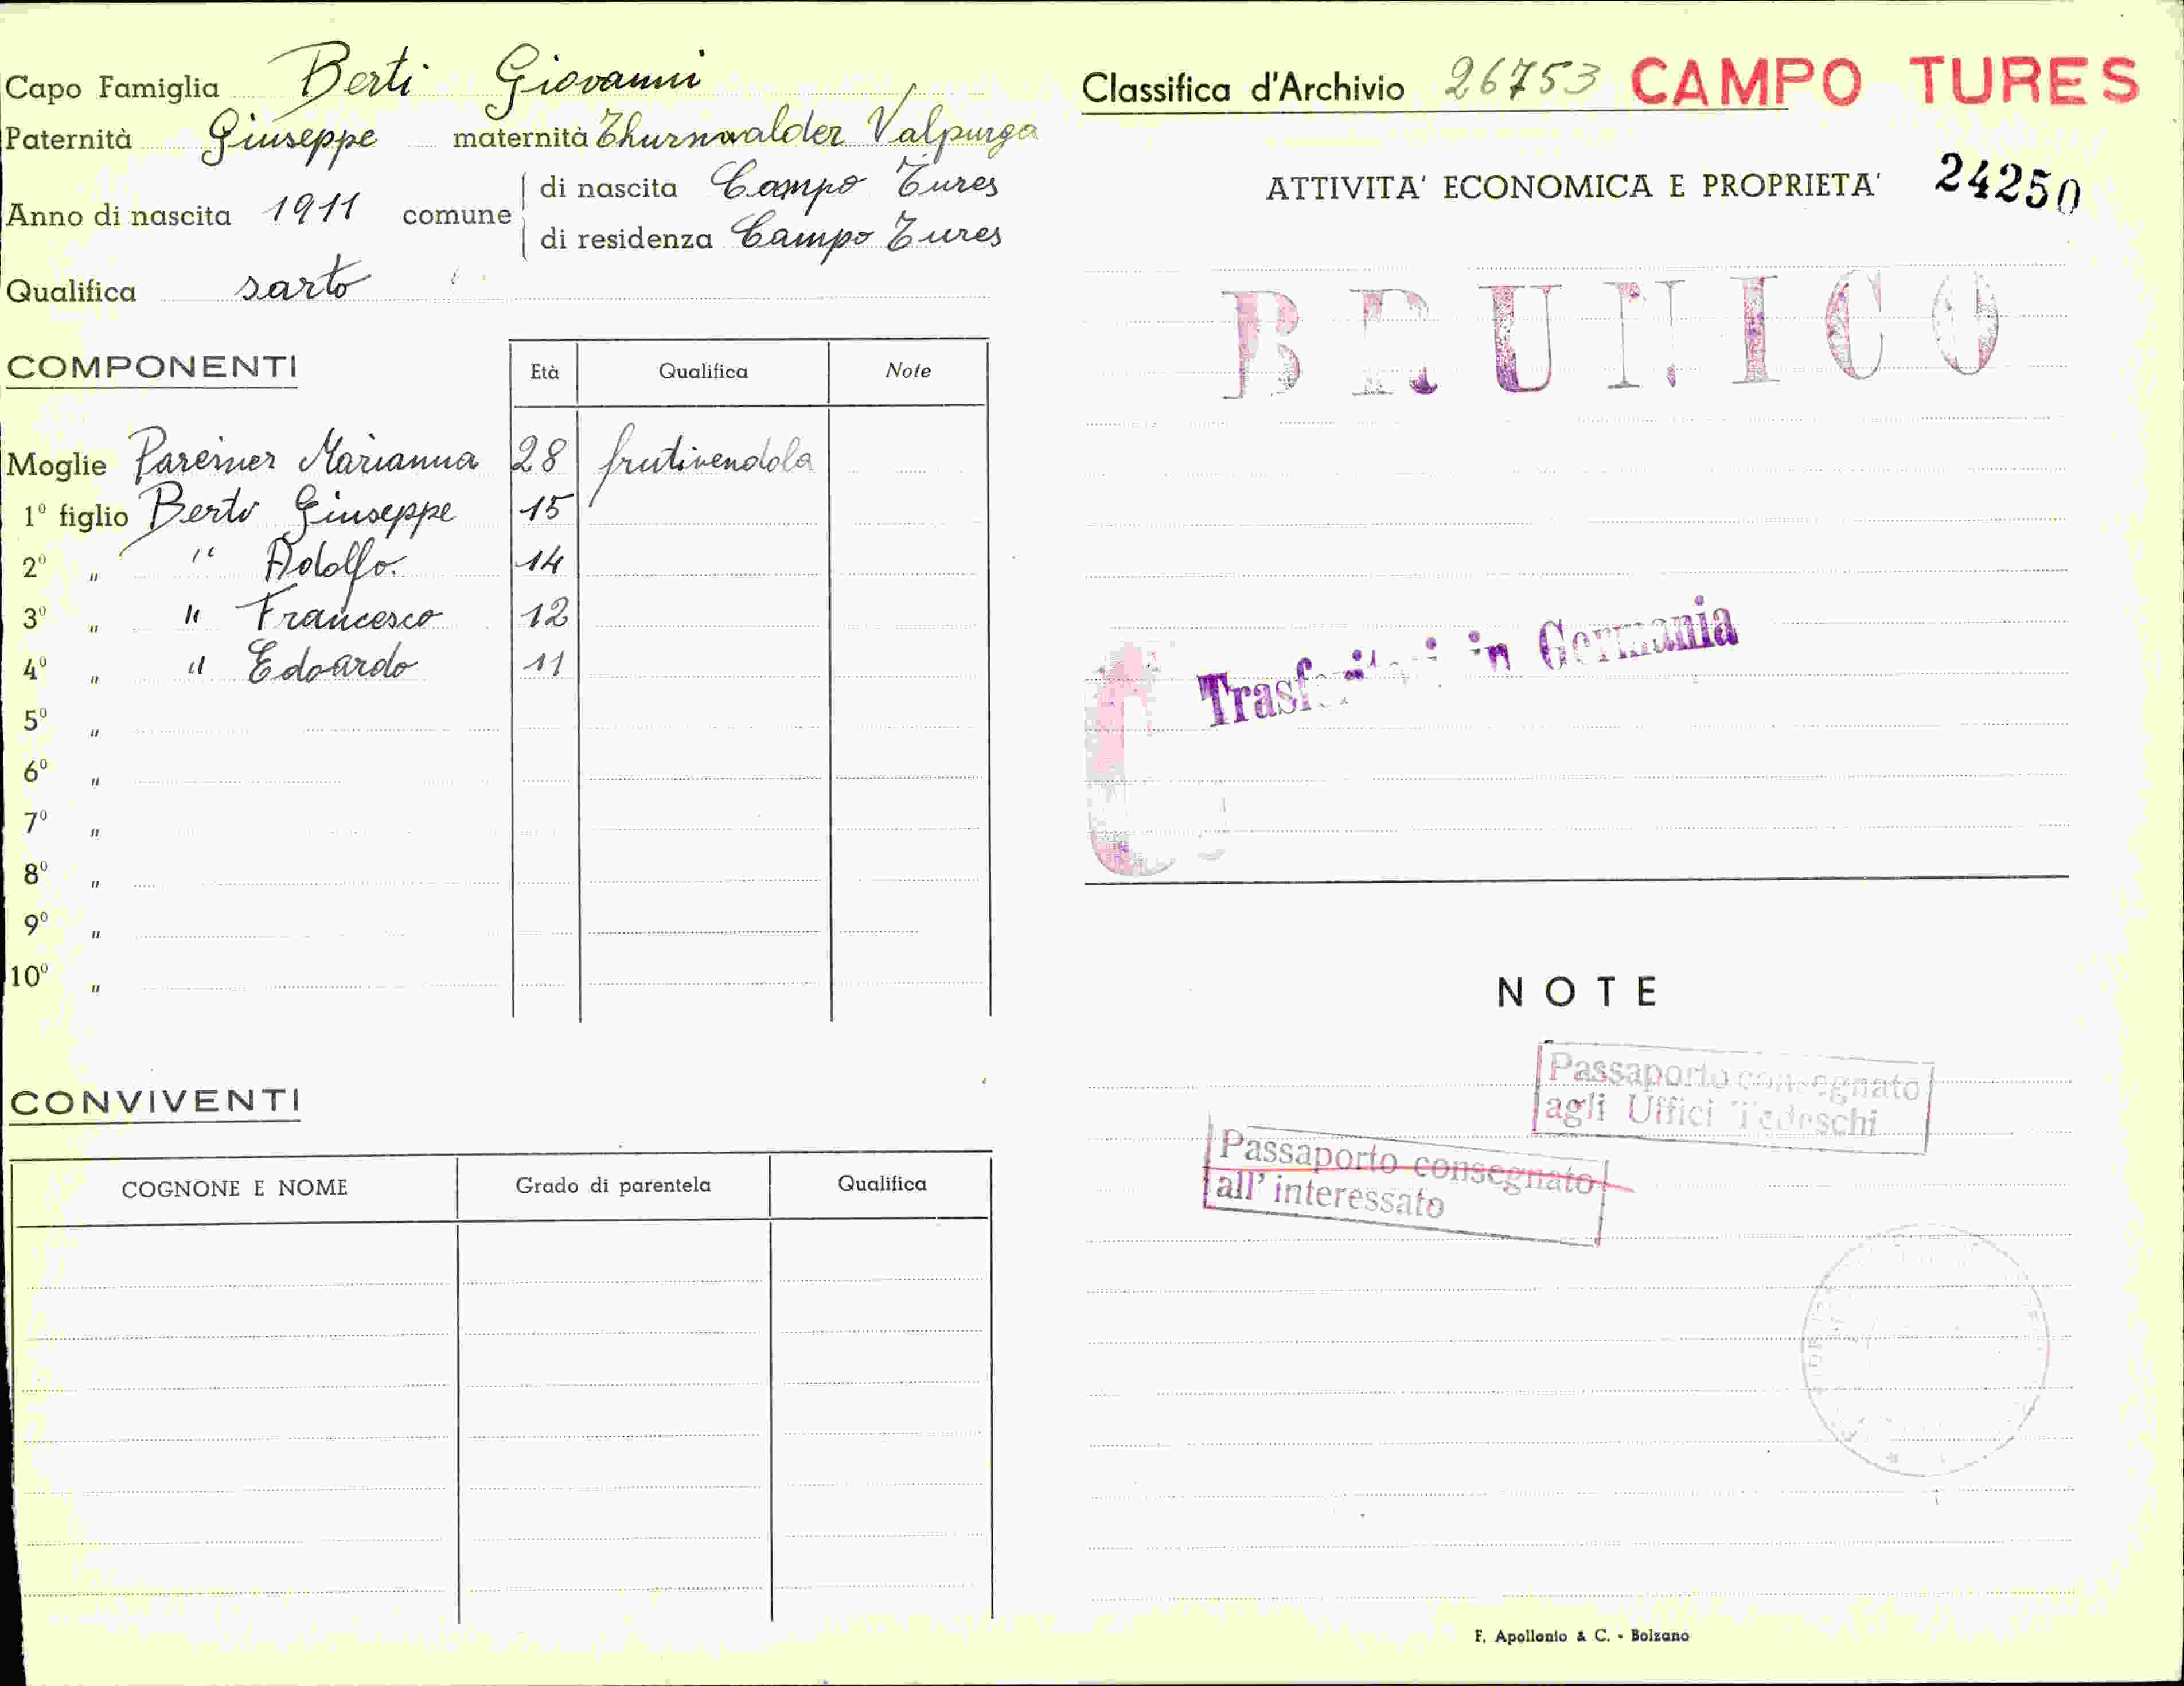 Capo Famiglia Berti Giovanni
Paternità Giuseppe maternità Thurnwalder Valpurga
Anno di nascita 1911 comune
di nascita Campo Tures
di residenza Campo Tures
Qualifica sarto
COMPONENTI
Età Qualifica Note
Moglie Pareiner Marianna 28 frutivendola
1º figlio Berti Giuseppe 15
2º " " Adolfo. 14
3º " " Francesco 12
4º " " Edoardo 11
5º "
6º "
7º "
8º "
9º "
10º "
CONVIVENTI
COGNONE E NOME Grado di parentela Qualifica
Classifica d'Archivio 26753 CAMPO TURES
ATTIVITA' ECONOMICA E PROPRIETA' 24250
BRUNICO
in Germania
NOTE
Passaporto consegnato
agli Uffici Tedeschi
Passaporto consegnato
all' interessato
F. Apollonio & C. - Bolzano